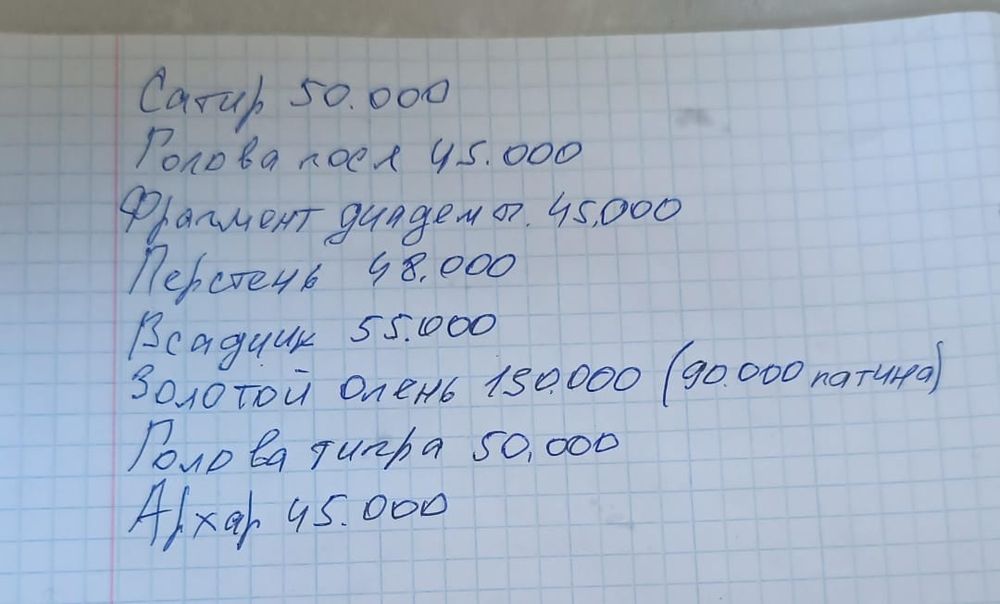 Сатир 50.000
Голова лося 45.000
Фрагмент диадемы. 45,000
Перстень 48.000
Всадник 55.000
Золотой олень 150.000 (90.000 патина)
Голова тигра 50,000
Архар 45.000